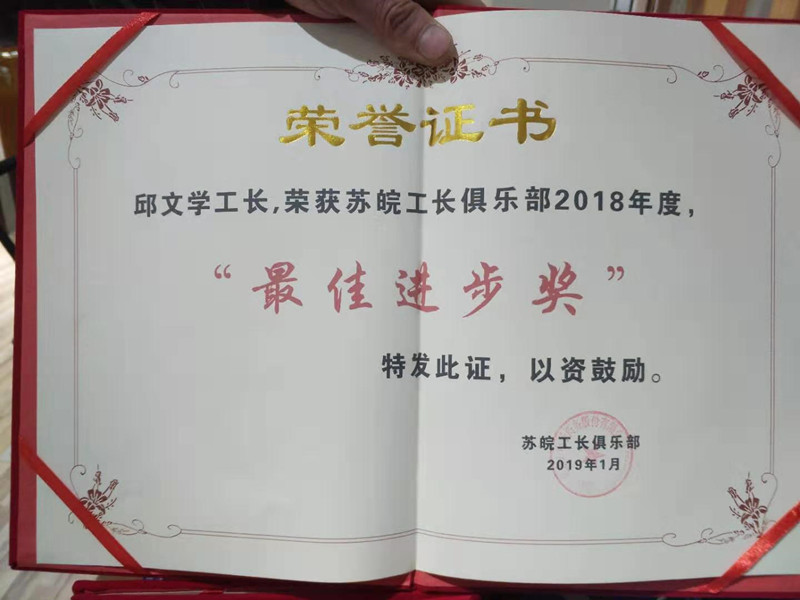 荣誉证书
邱文学工长,荣获苏皖工长俱乐部2018年度,
“最佳进步奖”
特发此证，以资鼓励。
苏皖工长俱乐部
2019年1月